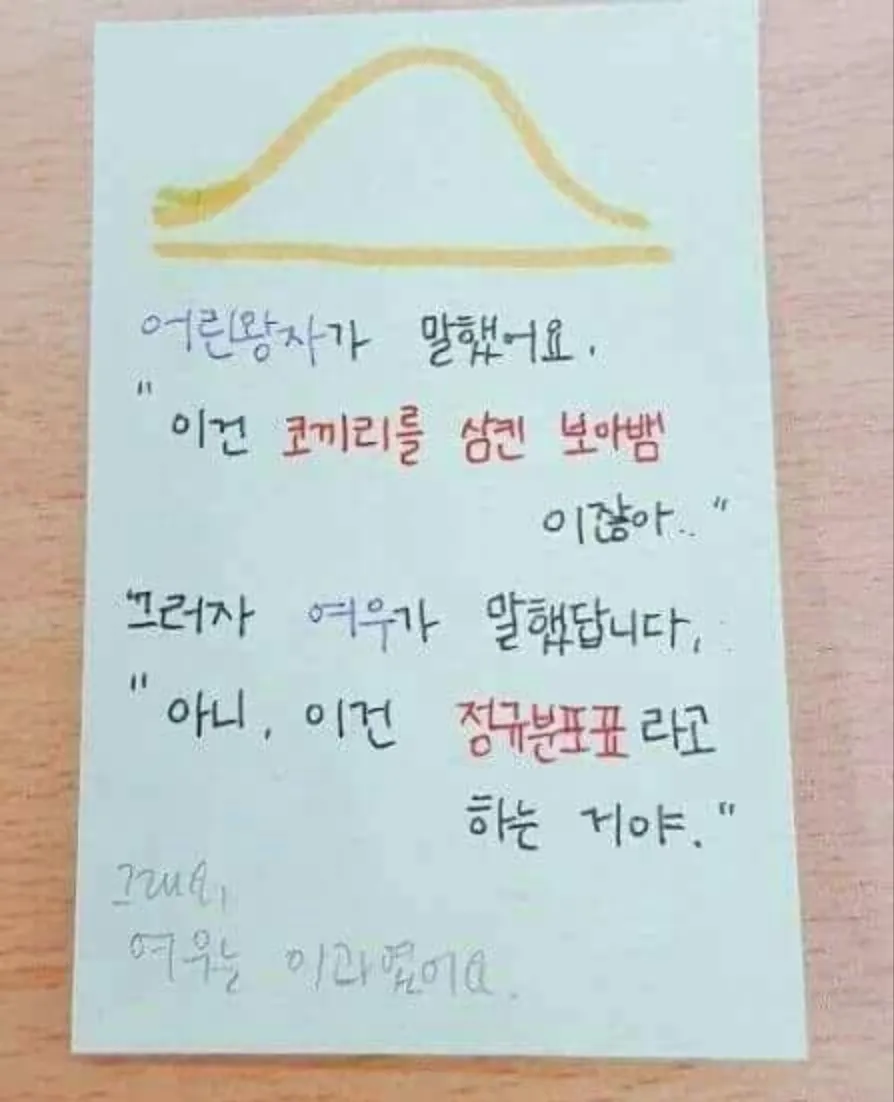 어린왕자가 말했어요.
"이건 코끼리를 삼킨 보아뱀
이잖아.."
그러자 여우가 말했답니다,
"아니, 이건 정규분포표라고
하는 거야."
그래요,
여우는 이과였어요.